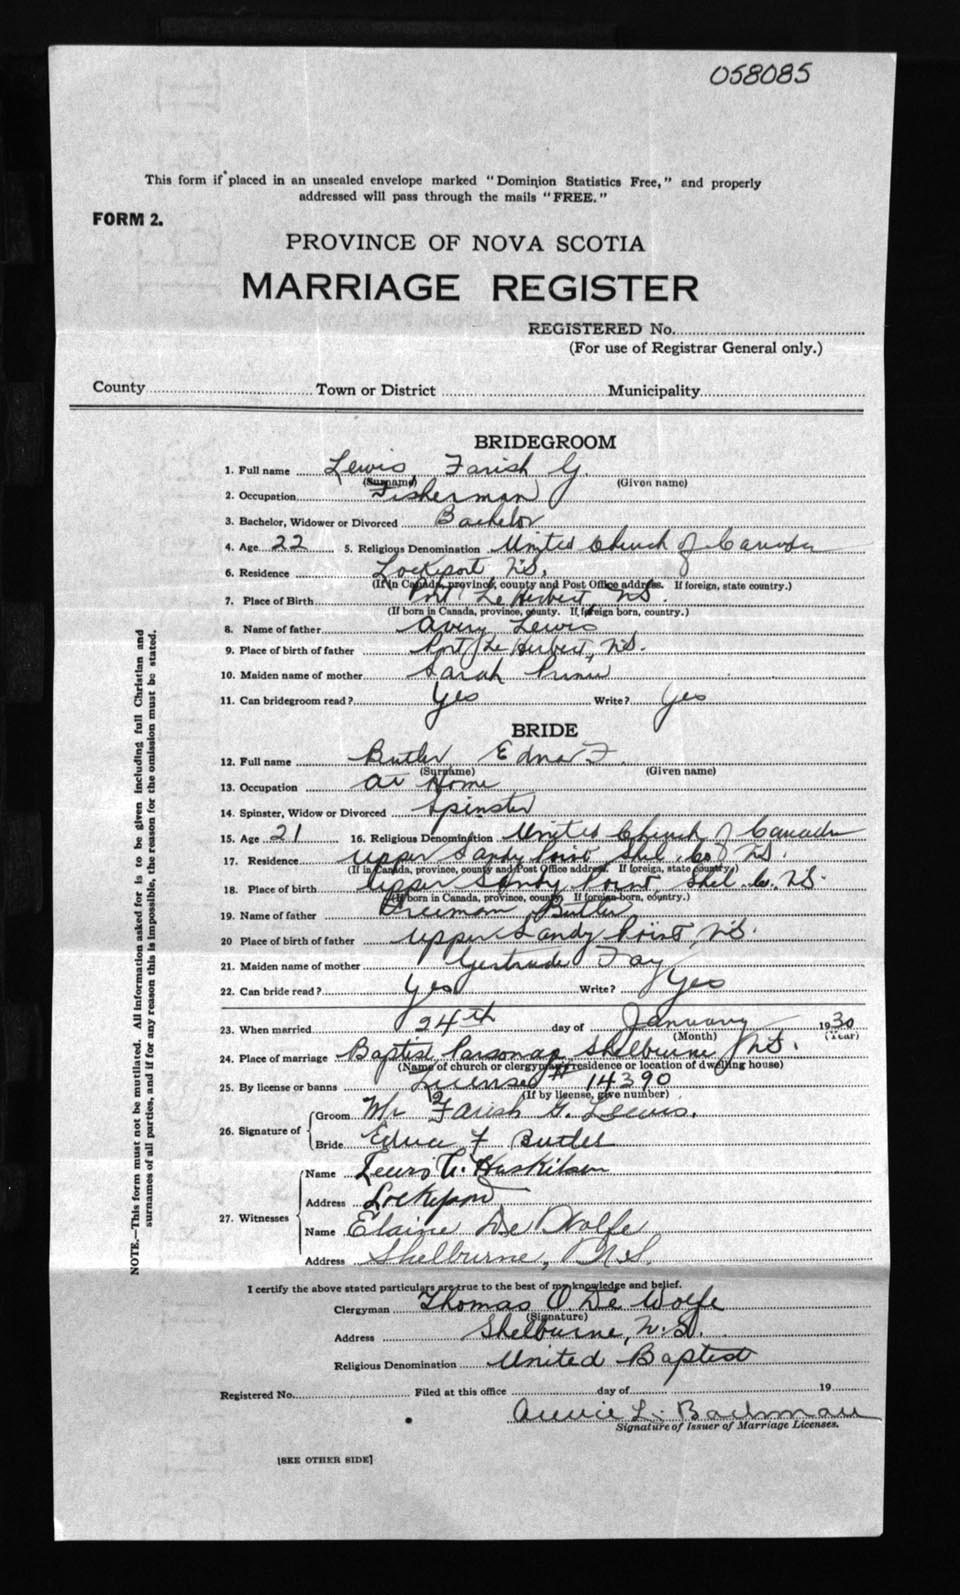 058085
This form if placed in an unsealed envelope marked "Dominion Statistics Free," and properly
addressed will pass through the mails "FREE."
FORM 2.
PROVINCE OF NOVA SCOTIA
MARRIAGE REGISTER
REGISTERED No.
(For use of Registrar General only.)
County Town or District Municipality
BRIDEGROOM
1. Full name Lewis, Farish G.
(Surname) (Given name)
2. Occupation Fisherman
3. Bachelor, Widower or Divorced Bachelor
4. Age 22 5. Religious Denomination United Church of Canada
6. Residence Lockeport N.S.
(If in Canada, province, county and Post Office address. If foreign, state country.)
7. Place of Birth Port Le Herbert N.S.
(If born in Canada, province, county. If foreign born, country.)
8. Name of father Avery Lewis
9. Place of birth of father Port Le Herbert, N.S.
10. Maiden name of mother Sarah
11. Can bridegroom read? Yes Write? Yes
BRIDE
12. Full name Butler Edna F.
(Surname) (Given name)
13. Occupation At Home
14. Spinster, Widow or Divorced Spinster
15. Age 21 16. Religious Denomination United Church of Canada
17. Residence Upper Sandy Point Shel. Co. N.S.
(If in Canada, province, county and Post Office address. If foreign, state country.)
18. Place of birth Upper Sandy Point, Shel. Co., N.S.
(If born in Canada, province, county. If foreign-born, country.)
19. Name of father Freeman Butler
20 Place of birth of father Upper Sandy Point, N.S.
21. Maiden name of mother Gertrude Fay
22. Can bride read? Yes Write? Yes
23. When married 24th day of January 1930
(Month) (Year)
24. Place of marriage Baptist Parsonage Shelburne N.S.
(Name of church or clergyman's residence or location of dwelling house)
25. By license or banns License # 14390
(If by license, give number)
26. Signature of Groom Mr Farish G. Lewis.
Bride Edna F Butler
27. Witnesses Name Lewis Huskilson
Address Lockeport
Name Elaine De Wolfe
Address Shelburne, N.S.
I certify the above stated particulars are true to the best of my knowledge and belief.
Clergyman Thomas O. De Wolfe
(Signature)
Address Shelburne, N.S.
Religious Denomination United Baptist
Registered No. Filed at this office day of 19
Annie L. Bachman
Signature of Issuer of Marriage Licenses.
[SEE OTHER SIDE]
NOTE.—This form must not be mutilated. All information asked for is to be given including full Christian and
surnames of all parties, and if for any reason this is impossible, the reason for the omission must be stated.